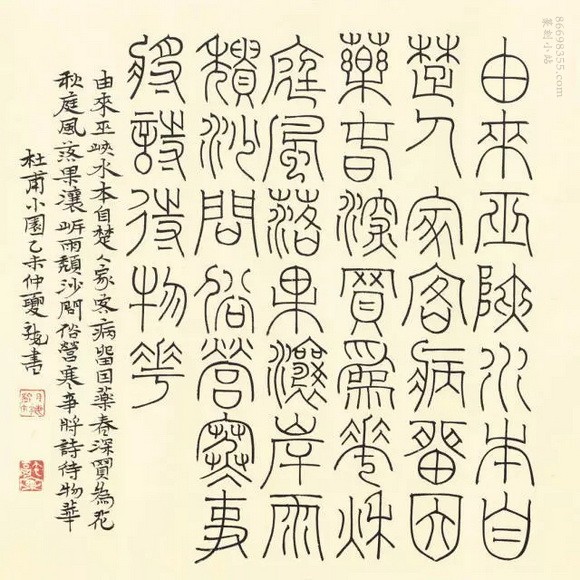 由來巫峽水本自
楚人家客病留因
藥春深買為花秋
庭風落果瀼岸雨
頹沙問俗營寒事
將詩待物華
由來巫峽水本自楚人家客病留因藥春深買為花
秋庭風落果瀼岸雨頹沙問俗營寒事將詩待物華
杜甫小園乙未仲夏書
86698355.com